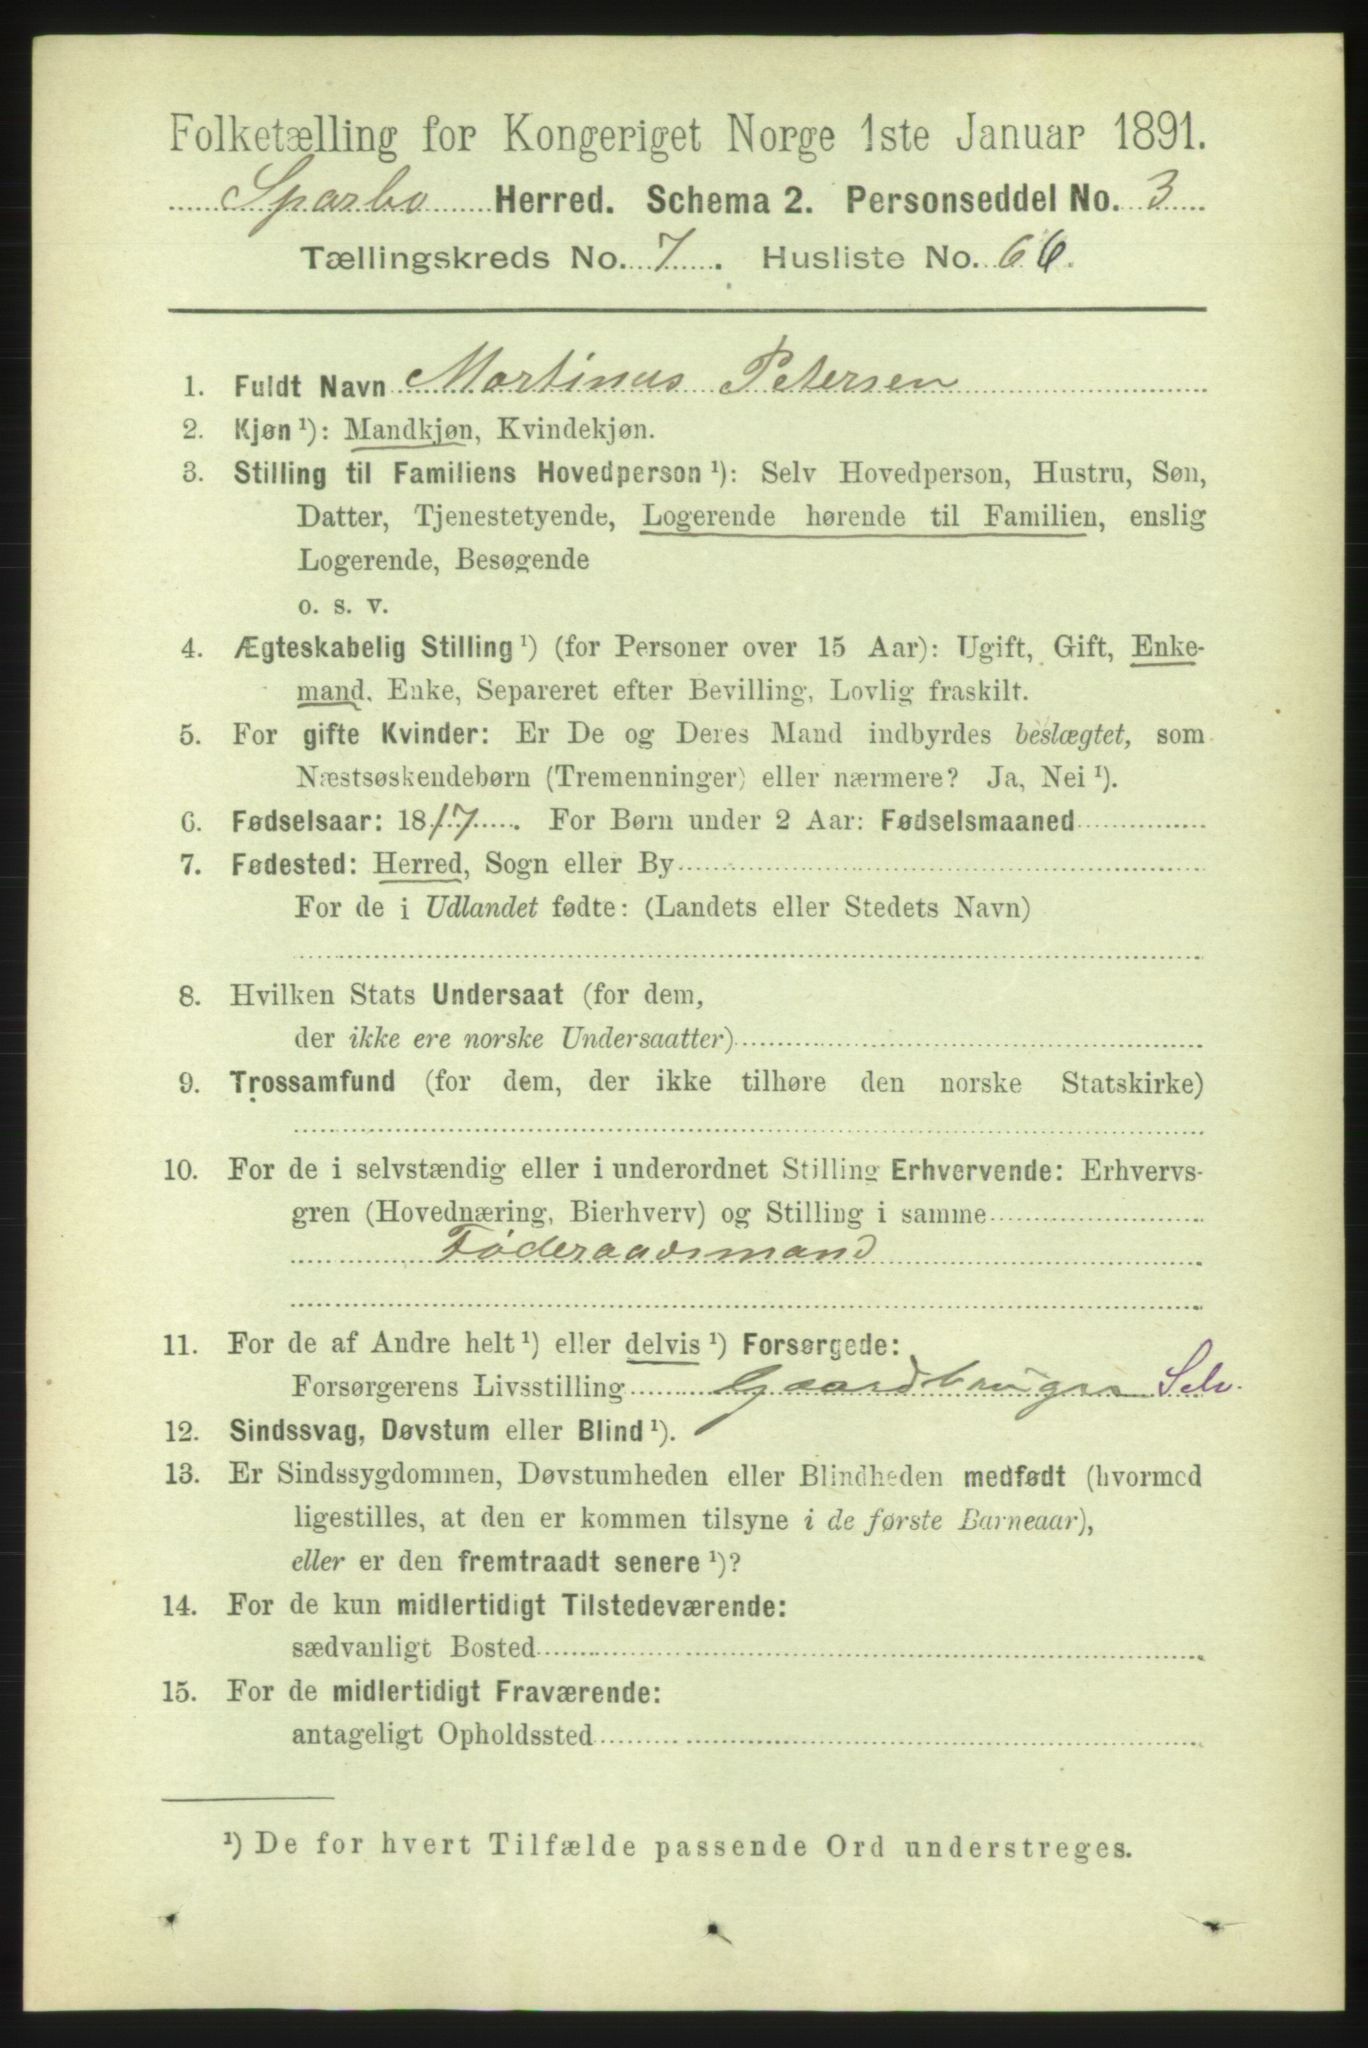 Folketælling for Kongeriget Norge 1ste Januar 1891.
Sparbo Herred. Schema 2. Personseddel No. 3
Tællingskreds No. 7. Husliste No. 66.
1. Fuldt Navn Martinus Petersen
2. Kjøn ¹): Mandkjøn, Kvindekjøn.
3. Stilling til Familiens Hovedperson ¹): Selv Hovedperson, Hustru, Søn,
Datter, Tjenestetyende, Logerende hørende til Familien, enslig
Logerende, Besøgende
o. s. v.
4. Ægteskabelig Stilling ¹) (for Personer over 15 Aar): Ugift, Gift, Enke-
mand, Enke, Separeret efter Bevilling, Lovlig fraskilt.
5. For gifte Kvinder: Er De og Deres Mand indbyrdes beslægtet, som
Næstsøskendebørn (Tremenninger) eller nærmere? Ja, Nei ¹).
6. Fødselsaar: 1817. For Børn under 2 Aar: Fødselsmaaned
7. Fødested: Herred, Sogn eller By
For de i Udlandet fødte: (Landets eller Stedets Navn)
8. Hvilken Stats Undersaat (for dem,
der ikke ere norske Undersaatter)
9. Trossamfund (for dem, der ikke tilhøre den norske Statskirke)
10. For de i selvstændig eller i underordnet Stilling Erhvervende: Erhvervs-
gren (Hovednæring, Bierhverv) og Stilling i samme
Føderaadsmand
11. For de af Andre helt ¹) eller delvis ¹) Forsørgede:
Forsørgerens Livsstilling Gaardbruger Selv.
12. Sindssvag, Døvstum eller Blind ¹).
13. Er Sindssygdommen, Døvstumheden eller Blindheden medfødt (hvormed
ligestilles, at den er kommen tilsyne i de første Barneaar),
eller er den fremtraadt senere ¹)?
14. For de kun midlertidigt Tilstedeværende:
sædvanligt Bosted
15. For de midlertidigt Fraværende:
antageligt Opholdssted
¹) De for hvert Tilfælde passende Ord understreges.